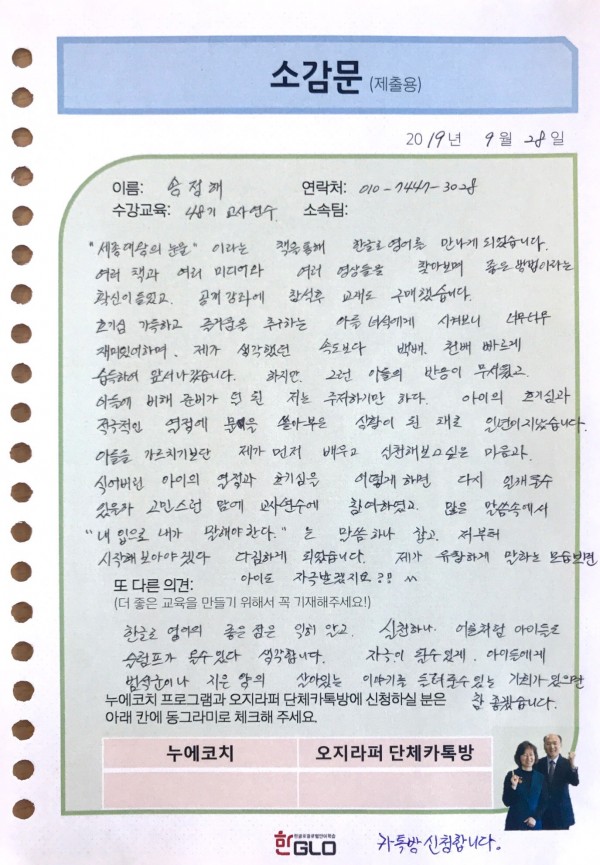 소감문 (제출용)
2019년 9월 28일
이름: 용정해 연락처: 010-7447-3028
수강교육: 48기 교사연수 소속팀:
"세종대왕의 눈물" 이라는 책을통해 한글로영어를 만나게 되었습니다.
여러 책과 여러 미디어와 여러 영상들을 찾아보며 좋은 방법이라는
확신이 들었고. 공개강좌에 참석후 교재도 구매했습니다.
호기심 가득하고 즐거움을 추구하는 아들 녀석에게 시켜보니 너무너무
재미있어하며. 제가 생각했던 속도보다 백배. 천배 빠르게
습득하여 앞서나갔습니다. 하지만. 그런 아들의 반응이 무서웠고.
아들에 비해 준비가 덜 된 저는 주저하기만 하다. 아이의 호기심과
적극적인 열정에 물을 쏟아부은 상황이 된 채로 일년이지났습니다.
아들을 가르치기보단 제가 먼저 배우고 실천해보고싶은 마음과.
식어버린 아이의 열정과 호기심을 어떻게 하면 다시 일깨울수
있을까 고민스런 맘에 교사연수에 참여하였고. 많은 말씀속에서
"내 입으로 내가 말해야한다." 는 말씀하나 잡고. 저부터
시작해 보아야겠다 다짐하게 되었습니다. 제가 유창하게 말하는 모습보면
아이도 자극받겠지요?!! ^^
또 다른 의견:
(더 좋은 교육을 만들기 위해서 꼭 기재해주세요!)
한글로 영어의 좋은 점은 익히 알고. 실천하나. 어른처럼 아이들도
슬럼프가 올수있다 생각합니다. 자극이 될수있게. 아이들에게
범석군이나 지은 양의 살아있는 이야기를 들려줄수있는 기회가있으면
참 좋겠습니다.
누에코치 프로그램과 오지라퍼 단체카톡방에 신청하실 분은
아래 칸에 동그라미로 체크해 주세요.
누에코치 오지라퍼 단체카톡방
한GLO
카톡방 신청합니다.